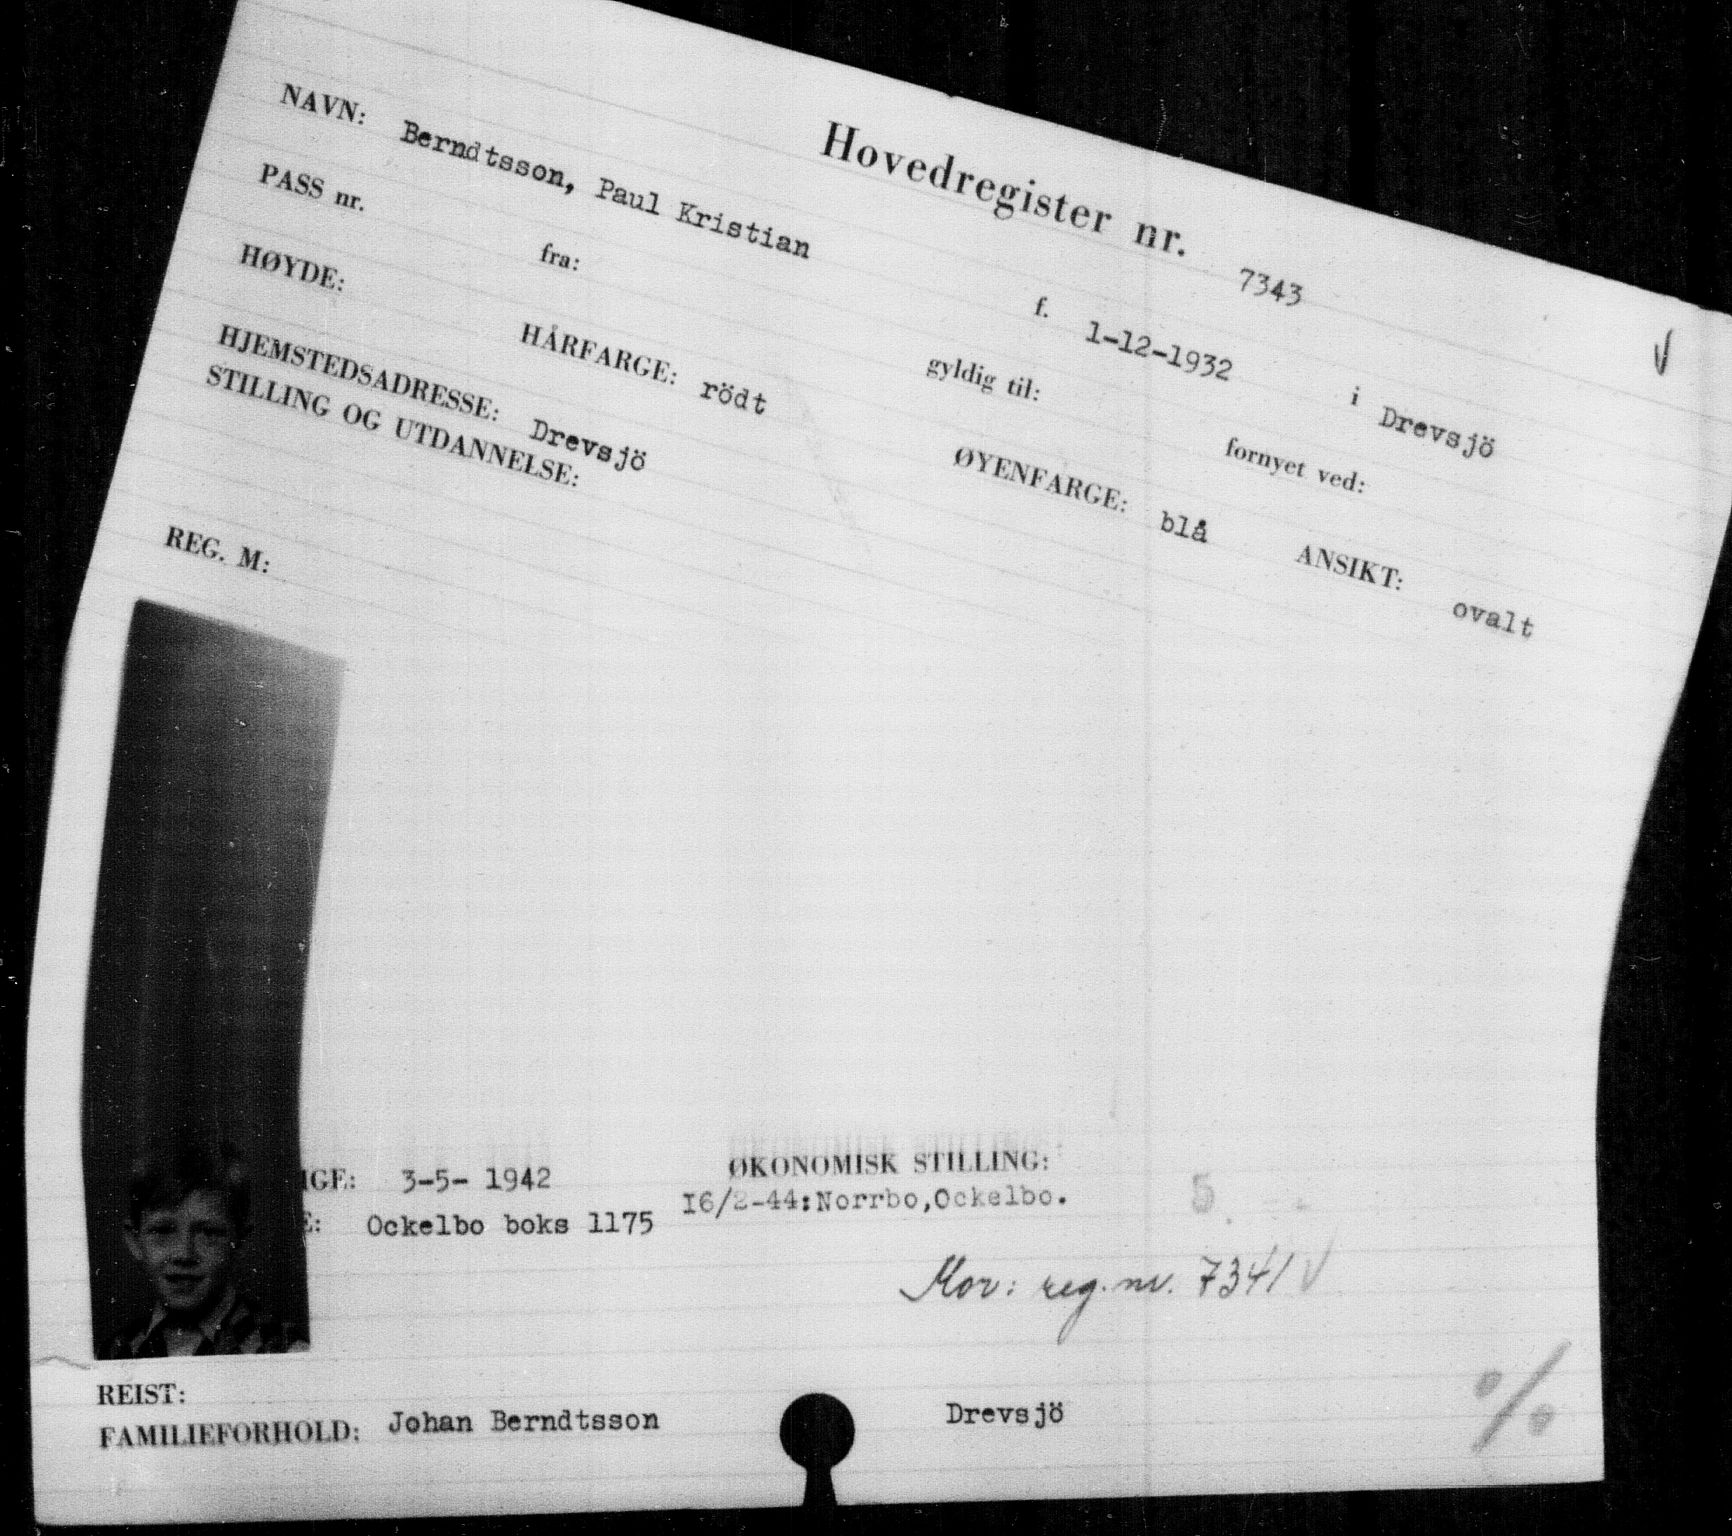 Hovedregister nr. 7343
NAVN: Berndtsson, Paul Kristian f. 1-12-1932 i Drevsjö
PASS nr. fra: gyldig til: fornyet ved:
HØYDE: HÅRFARGE: rödt ØYENFARGE: blå ANSIKT: ovalt
HJEMSTEDSADRESSE: Drevsjö
STILLING OG UTDANNELSE:
REG. M:
IGE: 3-5- 1942 ØKONOMISK STILLING:
16/2-44:Norrbo,Ockelbo. 5
E: Ockelbo boks 1175
Mor: reg. nr. 7341 V
REIST:
FAMILIEFORHOLD: Johan Berndtsson Drevsjö
%